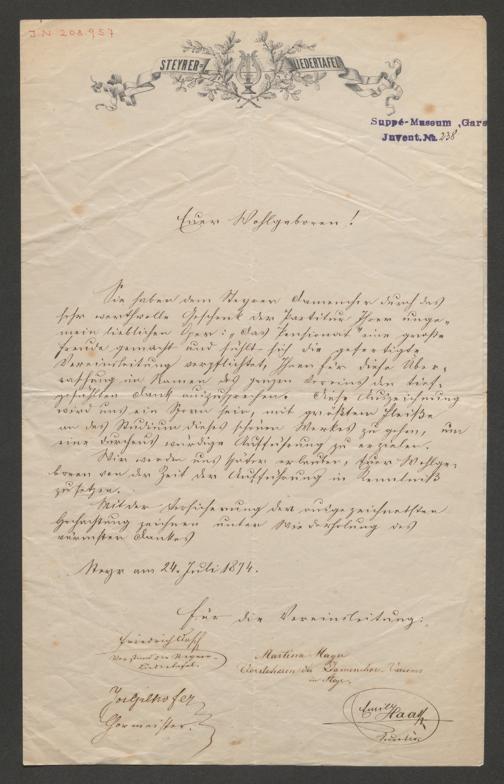 J.N. 208.957
STEYRER-LIEDERTAFEL
Suppé-Museum, Gars
Juvent. No. 238
Euer Wohlgeboren!
Sie haben dem Steyrer Damenchor durch das
sehr werthvolle Geschenk der Partitur Ihrer unge-
mein lieblichen Oper: „Das Pensionat" eine große
Freude gemacht und fühlt sich die gefertigte
Vereinsleitung verpflichtet, Ihnen für diese Über-
raschung im Namen des ganzen Vereins den tief-
gefühlten Dank auszusprechen. Diese Auszeichnung
wird uns ein Sporn sein, mit größtem Fleiße
an das Studium dieses schönen Werkes zu gehen, um
eine durchaus würdige Aufführung zu erzielen.
Wir werden uns später erlauben, Euer Wohlge-
boren von der Zeit der Aufführung in Kenntniß
zu setzen.
Mit der Versicherung der ausgezeichnetsten
Hochachtung zeichnen unter Wiederholung des
wärmsten Dankes
Steyr am 24. Juli 1874.
Für die Vereinsleitung:
Friedrich
Vorstand der Steyrer-
Liedertafel.
Martina Mayr
Vorsteherin des Damenchor-Vereins
in Steyr.
Chormeister.
Emil Haas